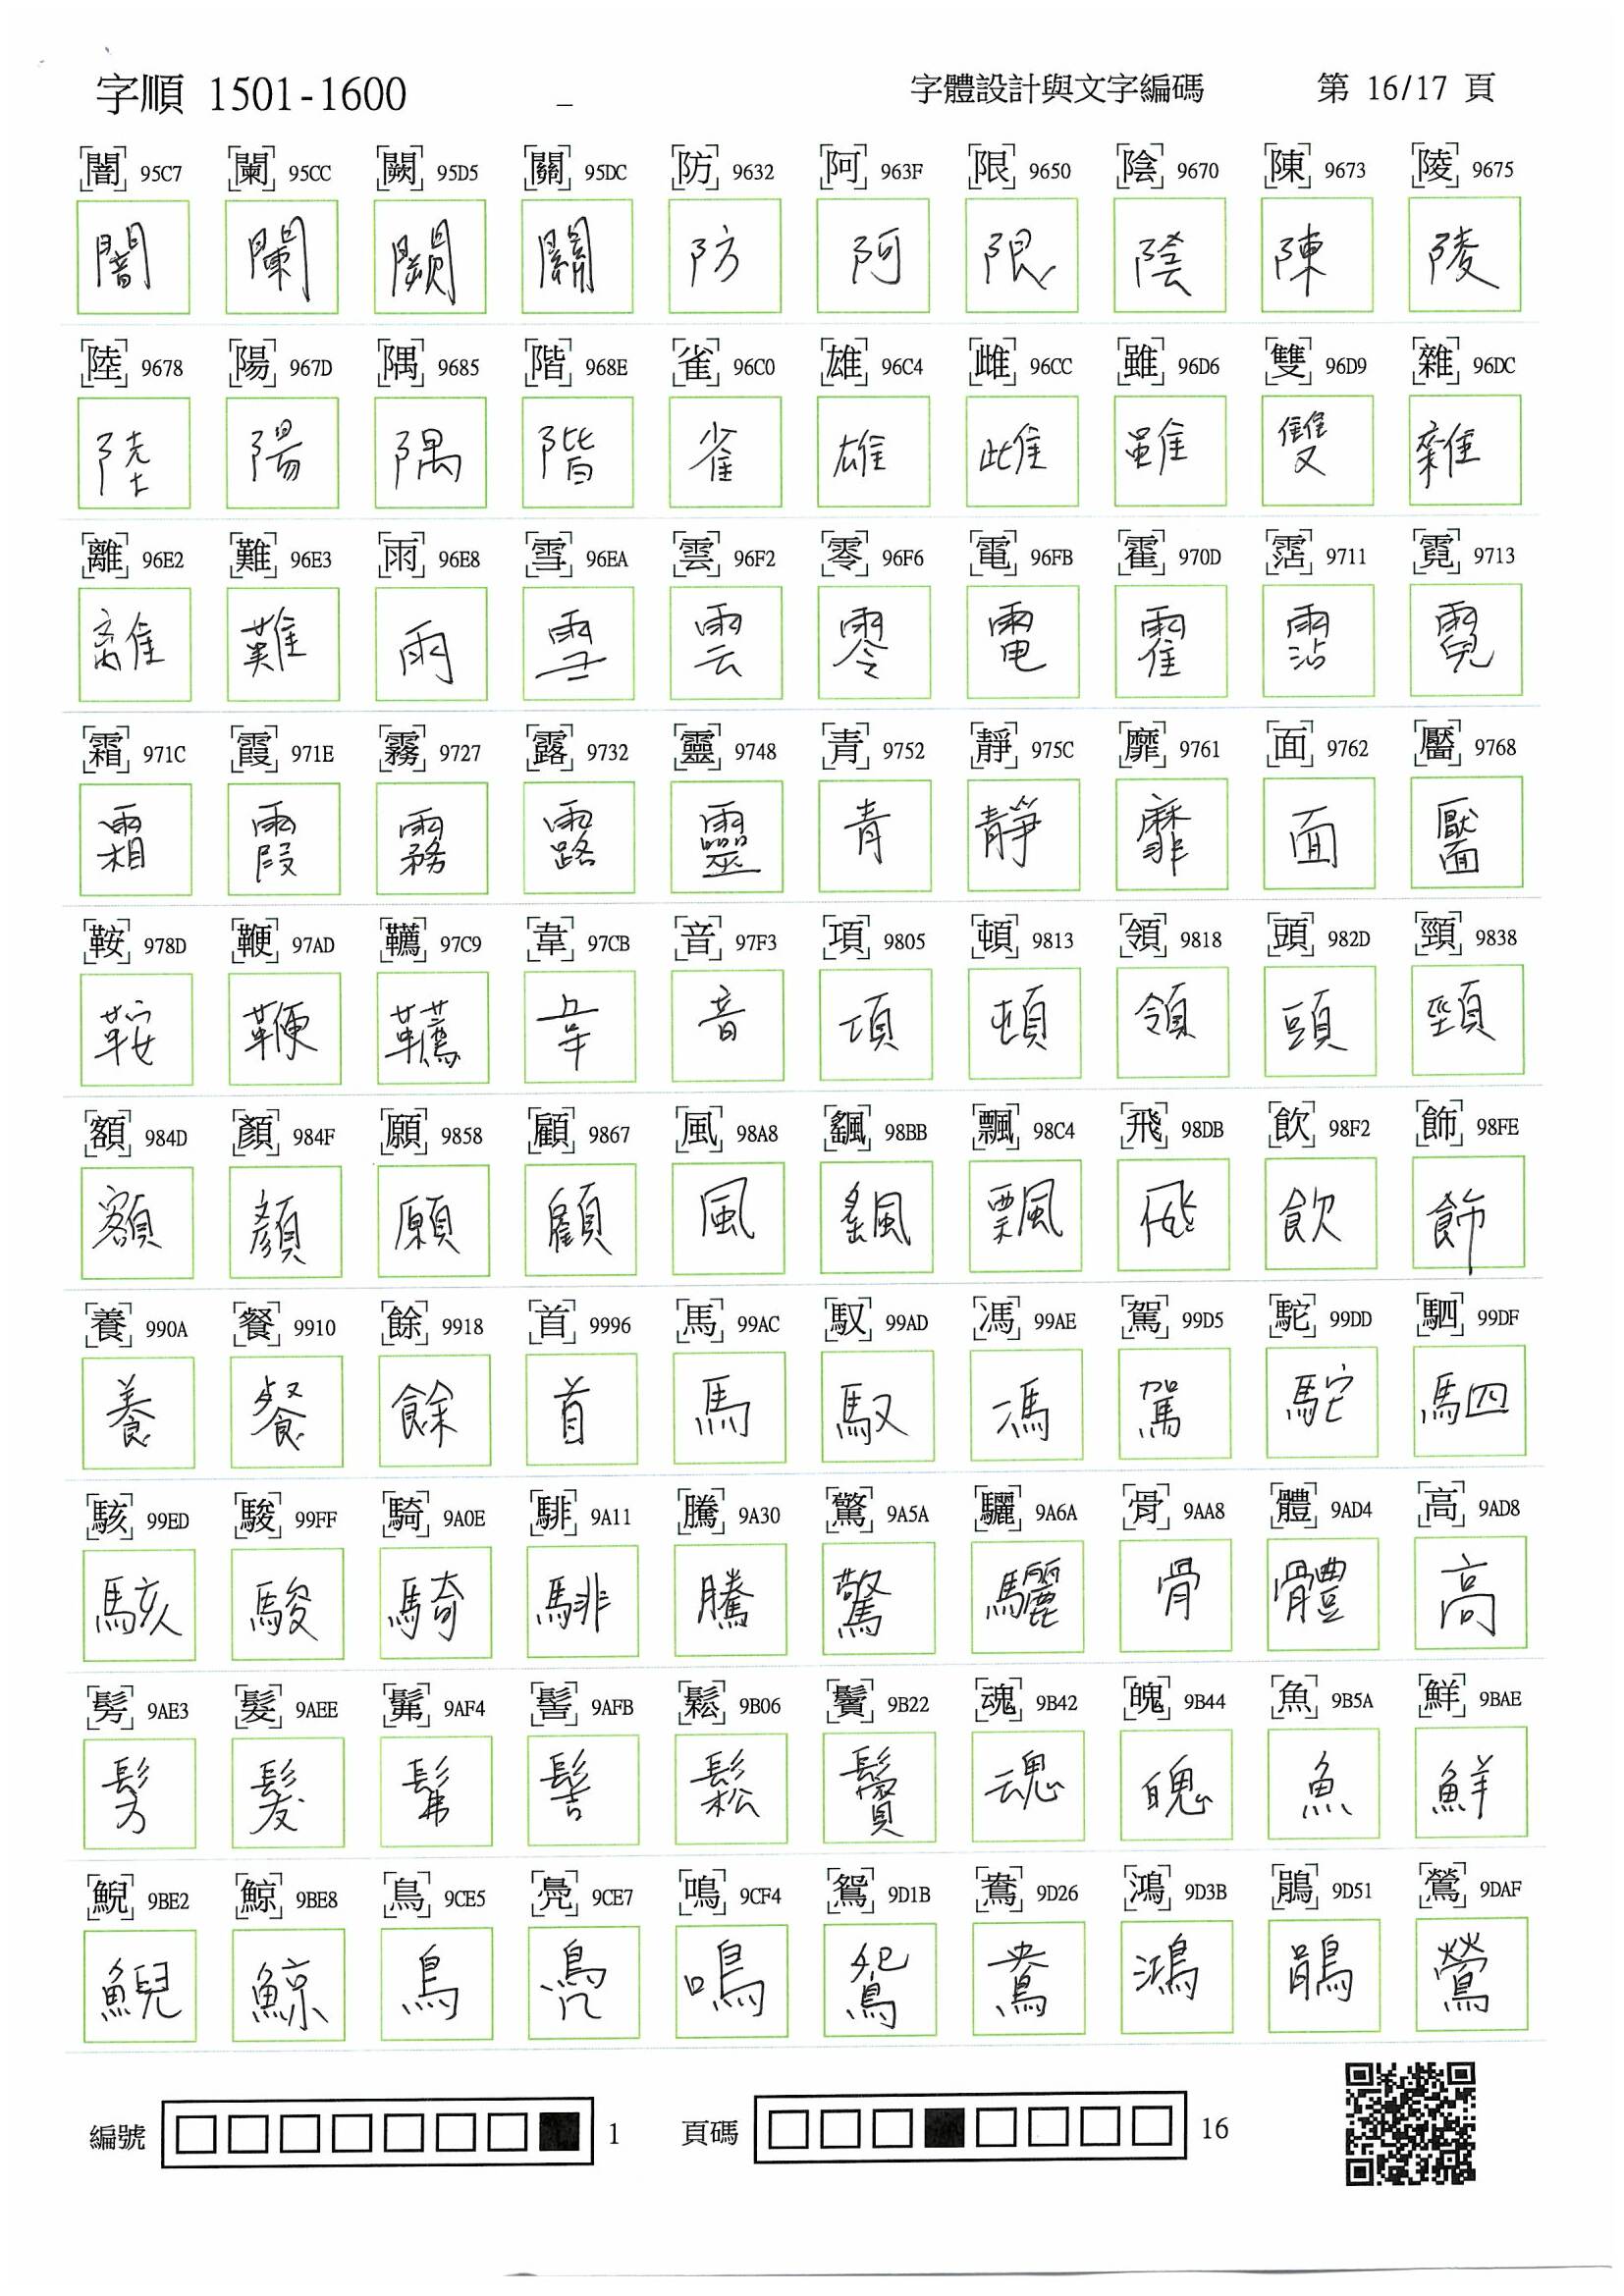 字順 1501-1600 字體設計與文字編碼 第 16/17 頁
闇 95C7 闌 95CC 闕 95D5 關 95DC 防 9632 阿 963F 限 9650 陰 9670 陳 9673 陵 9675
闇 闌 闕 關 防 阿 限 陰 陳 陵
陸 9678 陽 967D 隅 9685 階 968E 雀 96C0 雄 96C4 雌 96CC 雖 96D6 雙 96D9 雜 96DC
陸 陽 隅 階 雀 雄 雌 雖 雙 雜
離 96E2 難 96E3 雨 96E8 雪 96EA 雲 96F2 零 96F6 電 96FB 霍 970D 霑 9711 霓 9713
離 難 雨 雪 雲 零 電 霍 霑 霓
霜 971C 霞 971E 霧 9727 露 9732 靈 9748 青 9752 靜 975C 靡 9761 面 9762 靨 9768
霜 霞 霧 露 靈 青 靜 靡 面 靨
鞍 978D 鞭 97AD 韉 97C9 韋 97CB 音 97F3 項 9805 頓 9813 領 9818 頭 982D 頸 9838
鞍 鞭 韉 韋 音 項 頓 領 頭 頸
額 984D 顏 984F 願 9858 顧 9867 風 98A8 颻 98BB 飄 98C4 飛 98DB 飲 98F2 飾 98FE
額 顏 願 顧 風 颻 飄 飛 飲 飾
養 990A 餐 9910 餘 9918 首 9996 馬 99AC 馭 99AD 馮 99AE 駕 99D5 駝 99DD 駟 99DF
養 餐 餘 首 馬 馭 馮 駕 駝 駟
駭 99ED 駿 99FF 騎 9A0E 騑 9A11 騰 9A30 驚 9A5A 驪 9A6A 骨 9AA8 體 9AD4 高 9AD8
駭 駿 騎 騑 騰 驚 驪 骨 體 高
髣 9AE3 髮 9AEE 髴 9AF4 髻 9AFB 鬆 9B06 鬢 9B22 魂 9B42 魄 9B44 魚 9B5A 鮮 9BAE
髣 髮 髴 髻 鬆 鬢 魂 魄 魚 鮮
鯢 9BE2 鯨 9BE8 鳥 9CE5 鳧 9CE7 鳴 9CF4 鴛 9D1B 鴦 9D26 鴻 9D3B 鵑 9D51 鶯 9DAF
鯢 鯨 鳥 鳧 鳴 鴛 鴦 鴻 鵑 鶯
編號 1 頁碼 16